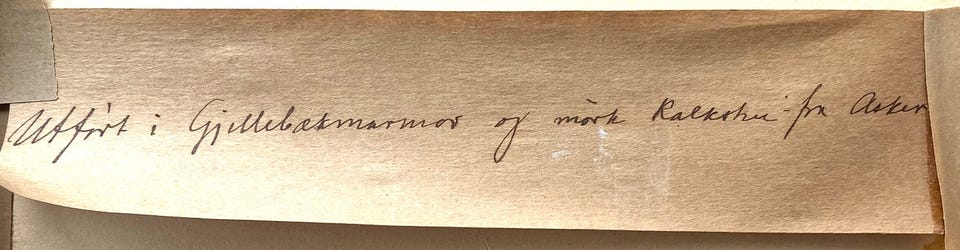 Utført i Gjellebækmarmor og mörk Kalksten fra Asker